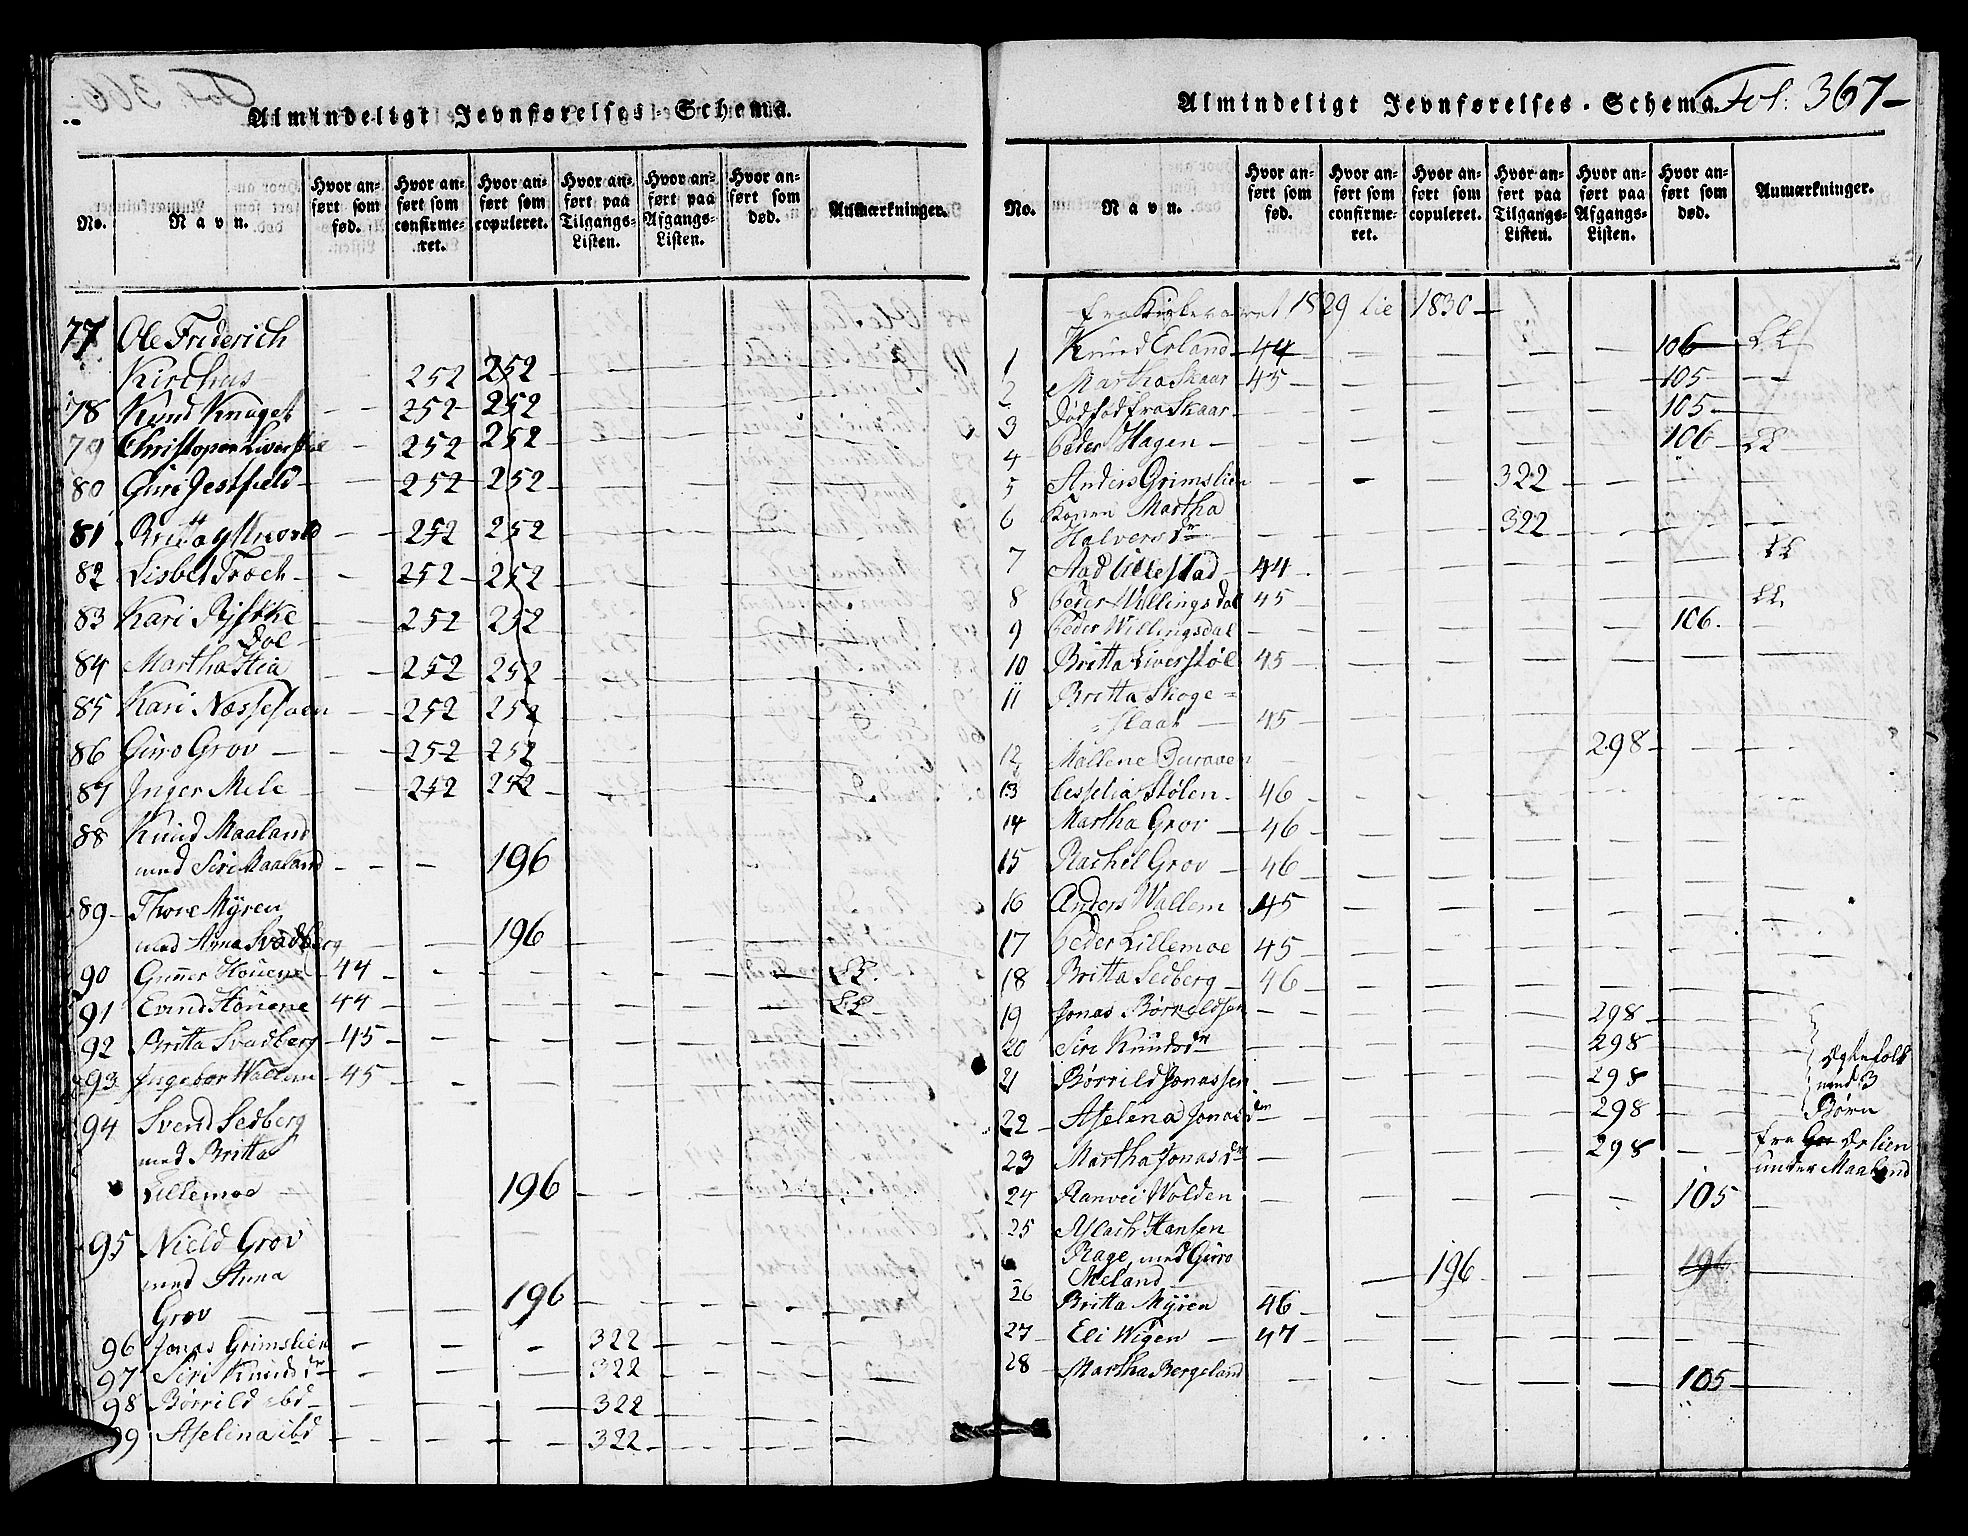 Almindeligt Jevnførelses-Schema.
No. Navn. Hvor anført som fød. Hvor anført som confirmeret. Hvor anført som copuleret. Hvor anført paa Tilgangs-Listen. Hvor anført paa Afgangs-Listen. Hvor anført som død. Anmærkninger.
77 Ole Friderich
Kirchus 252 252
78 Knud 252 252
79 252 252
80 Guri 252 252
81 Britta 252 252
82 Lisbet 252 252
83 Kari 252 252
Dol
84 Martha 252 252
85 Kari 252 252
86 Guro Grov 252 252
87 Inger Mele 252 252
88 Knud Maaland
med Siri Maaland 196
89 Thore Mÿren
med Anna Svadberg 196
90 Gunner Houene 44
91 Evind Houene 44
92 Britta Svadberg 45
93 Ingebor Wallem 45
94 Svend Sedberg
med Britta
Lillemoe 196
95 Nield Grov
med Anna
Grov 196
96 Jonas Grimslien 322
97 Siri Knuds dr 322
98 Børrild ibd 322
99 Aselina ibd 322
Almindeligt Jevnførelses-Schema. Fol: 367
No. Navn. Hvor anført som fød. Hvor anført som confirmeret. Hvor anført som copuleret. Hvor anført paa Tilgangs-Listen. Hvor anført paa Afgangs-Listen. Hvor anført som død. Anmærkninger.
fra 1829 1830
1 Knud Erland 44 106
2 Martha Skaar 45 105
3 Dødfød fra Skaar 105
4 Peder Hagen 106
5 Anders Grimslien 322
6 Konen Martha
Halvers dr 322
7 Aad Lillestad 44
8 Peder Willingsdal 45
9 Peder Willingsdal 106.
10 Britta Liverstøl 45
11 Britta Skoge=
=slaat 45
12 Mallene 298
13 Cesselia Stølen 46
14 Martha Grov 46
15 Rachel Grov 46
16 Anders Wallem 45
17 Peder Lillemoe 45
18 Britta Sedberg 46
19 Jonas Børrildsen 298
20 Siri Knudsdr 298 Egtefolk
21 Børrild Jonassen 298 med 3
22 Aselena Jonasdr 298 Børn
23 Martha Jonasdr 298 fra
under Maaland
24 Ranvei Wolden 105
25 Aslach Hansen
Rage, med Guro
Meland 196 196
26 Britta Mÿren 46
27 Eli Wigen 47
28 Martha Bergeland 105